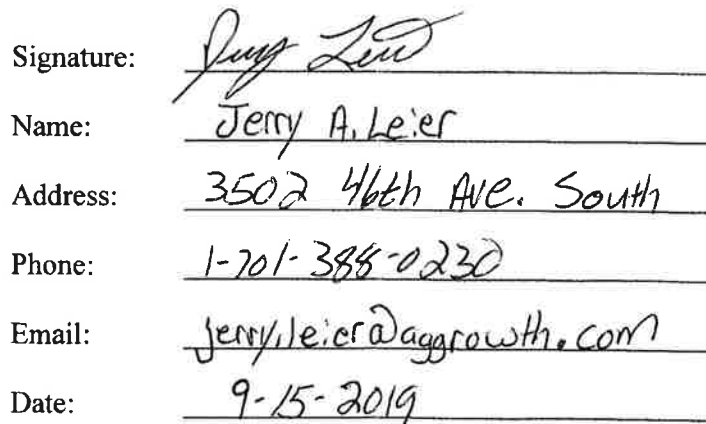 Signature: Jerry Leier
Name: Jerry A. Leier
Address: 3502 46th Ave. South
Phone: 1-701-388-0230
Email: jerry.leier@aggrowth.com
Date: 9-15-2019